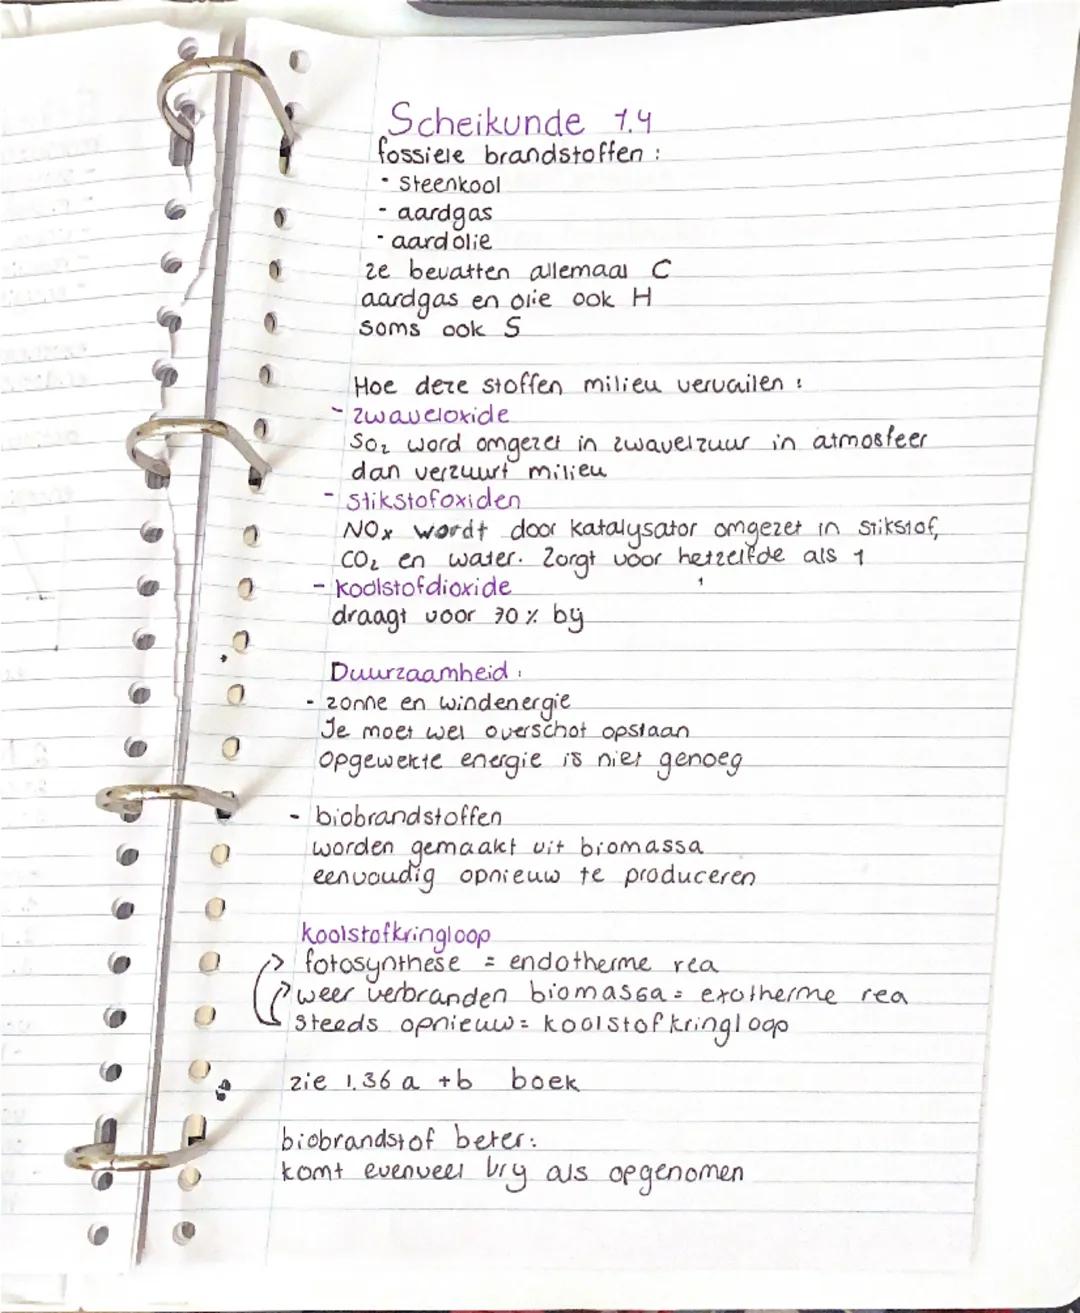 Scheikunde 1.4
fossiele brandstoffen :
- Steenkool
- aardgas
- aardolie
ze bevatten allemaal C
aardgas en olie ook H
soms ook S
Hoe deze stoffen milieu vervuilen :
- zwaveloxide
SO₂ word omgezet in zwavelzuur in atmosfeer
dan verzuurt milieu
- stikstofoxiden
NOx wordt door katalysator omgezet in stikstof,
CO₂ en water. Zorgt voor hetzelfde als 1
- koolstofdioxide
draagt voor 70% bij
Duurzaamheid :
- zonne en windenergie
Je moet wel overschot opslaan
opgewekte energie is niet genoeg
- biobrandstoffen
worden gemaakt uit biomassa
eenvoudig opnieuw te produceren
koolstofkringloop
fotosynthese = endotherme rea
weer verbranden biomassa = exotherme rea
steeds opnieuw = koolstofkringloop
zie 1.36 a + b boek
biobrandstof beter:
komt evenveel vrij als opgenomen